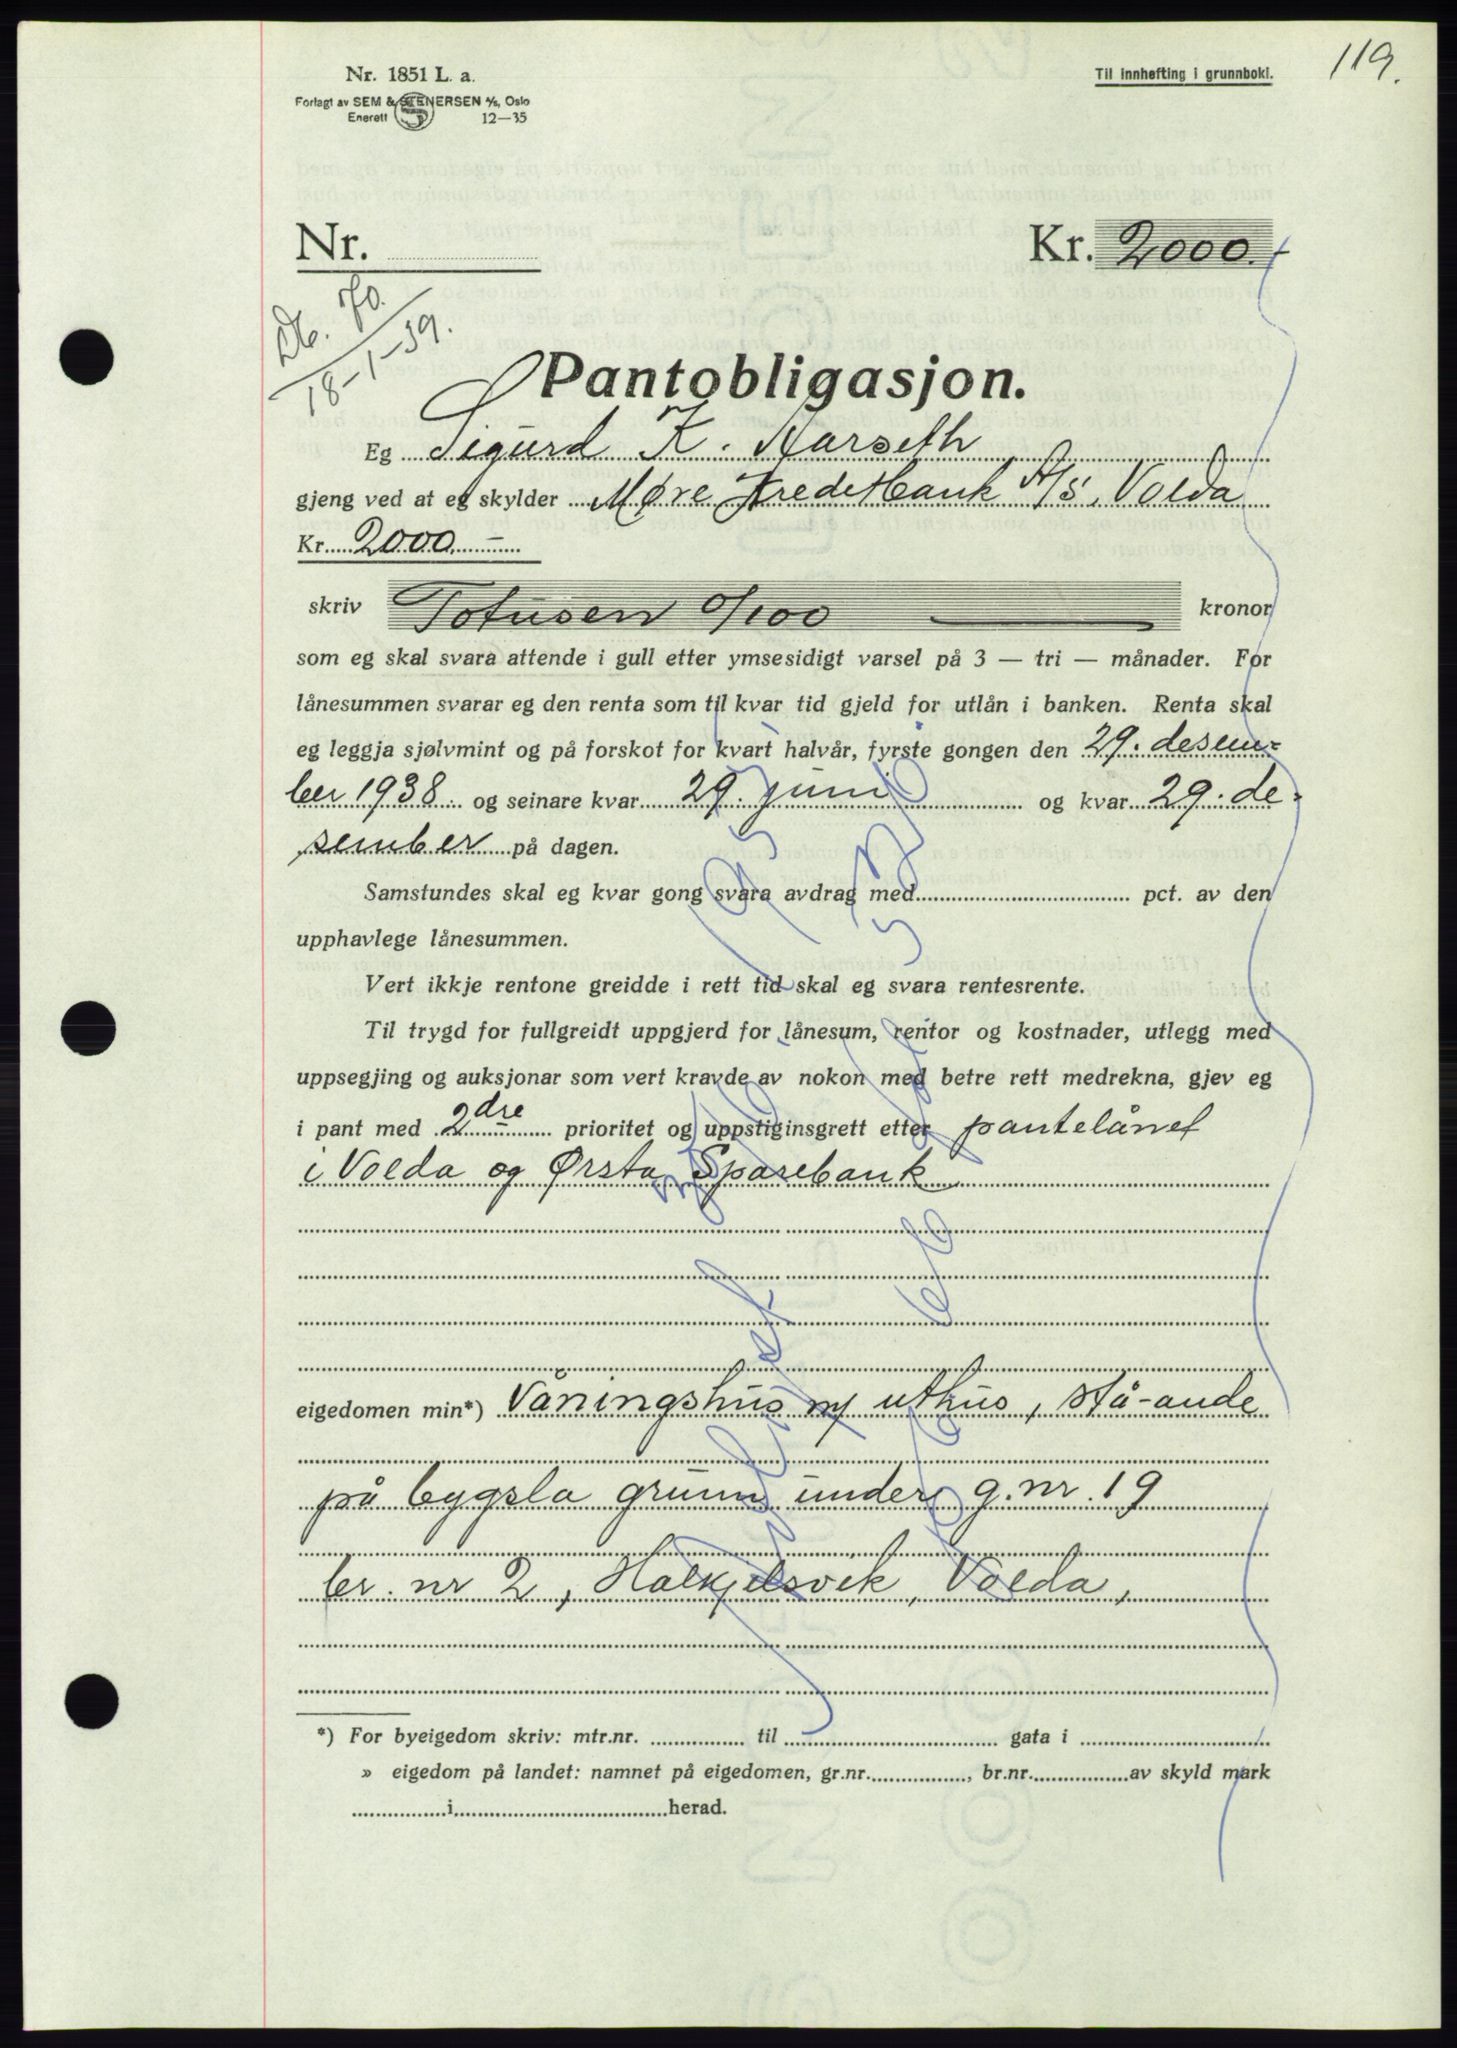 119.
Nr. 1851 L. a.
Til innhefting i grunnboki.
Forlagt av SEM & STENERSEN A/S, Oslo
Enerett 12—35
Nr.
Kr. 2000.-
Db. 70.
18-1-39.
Pantobligasjon.
Eg Sigurd K. Aarseth
gjeng ved at eg skylder Møre Kreditbank A/S, Volda
Kr. 2000.-
skriv Totusen 0/100 kronor
som eg skal svara attende i gull etter ymsesidigt varsel på 3 — tri — månader. For
lånesummen svarar eg den renta som til kvar tid gjeld for utlån i banken. Renta skal
eg leggja sjølvmint og på forskot for kvart halvår, fyrste gongen den 29. desem-
ber 1938 og seinare kvar 29. juni og kvar 29. de-
sember på dagen.
Samstundes skal eg kvar gong svara avdrag med pct. av den
upphavlege lånesummen.
Vert ikkje rentone greidde i rett tid skal eg svara rentesrente.
Til trygd for fullgreidt uppgjerd for lånesum, rentor og kostnader, utlegg med
uppsegjing og auksjonar som vert kravde av nokon med betre rett medrekna, gjev eg
i pant med 2dre prioritet og uppstiginsgrett etter pantelånet
i Volda og Ørsta Sparebank
eigedomen min*) Våningshus m/ uthus, stå-ande
på bygsla grunn under g. nr. 19
br. nr 2, Halkjelsvik, Volda,
*) For byeigedom skriv: mtr.nr. til gata i
» eigedom på landet: namnet på eigedomen, gr.nr. , br.nr. av skyld mark
i herad.